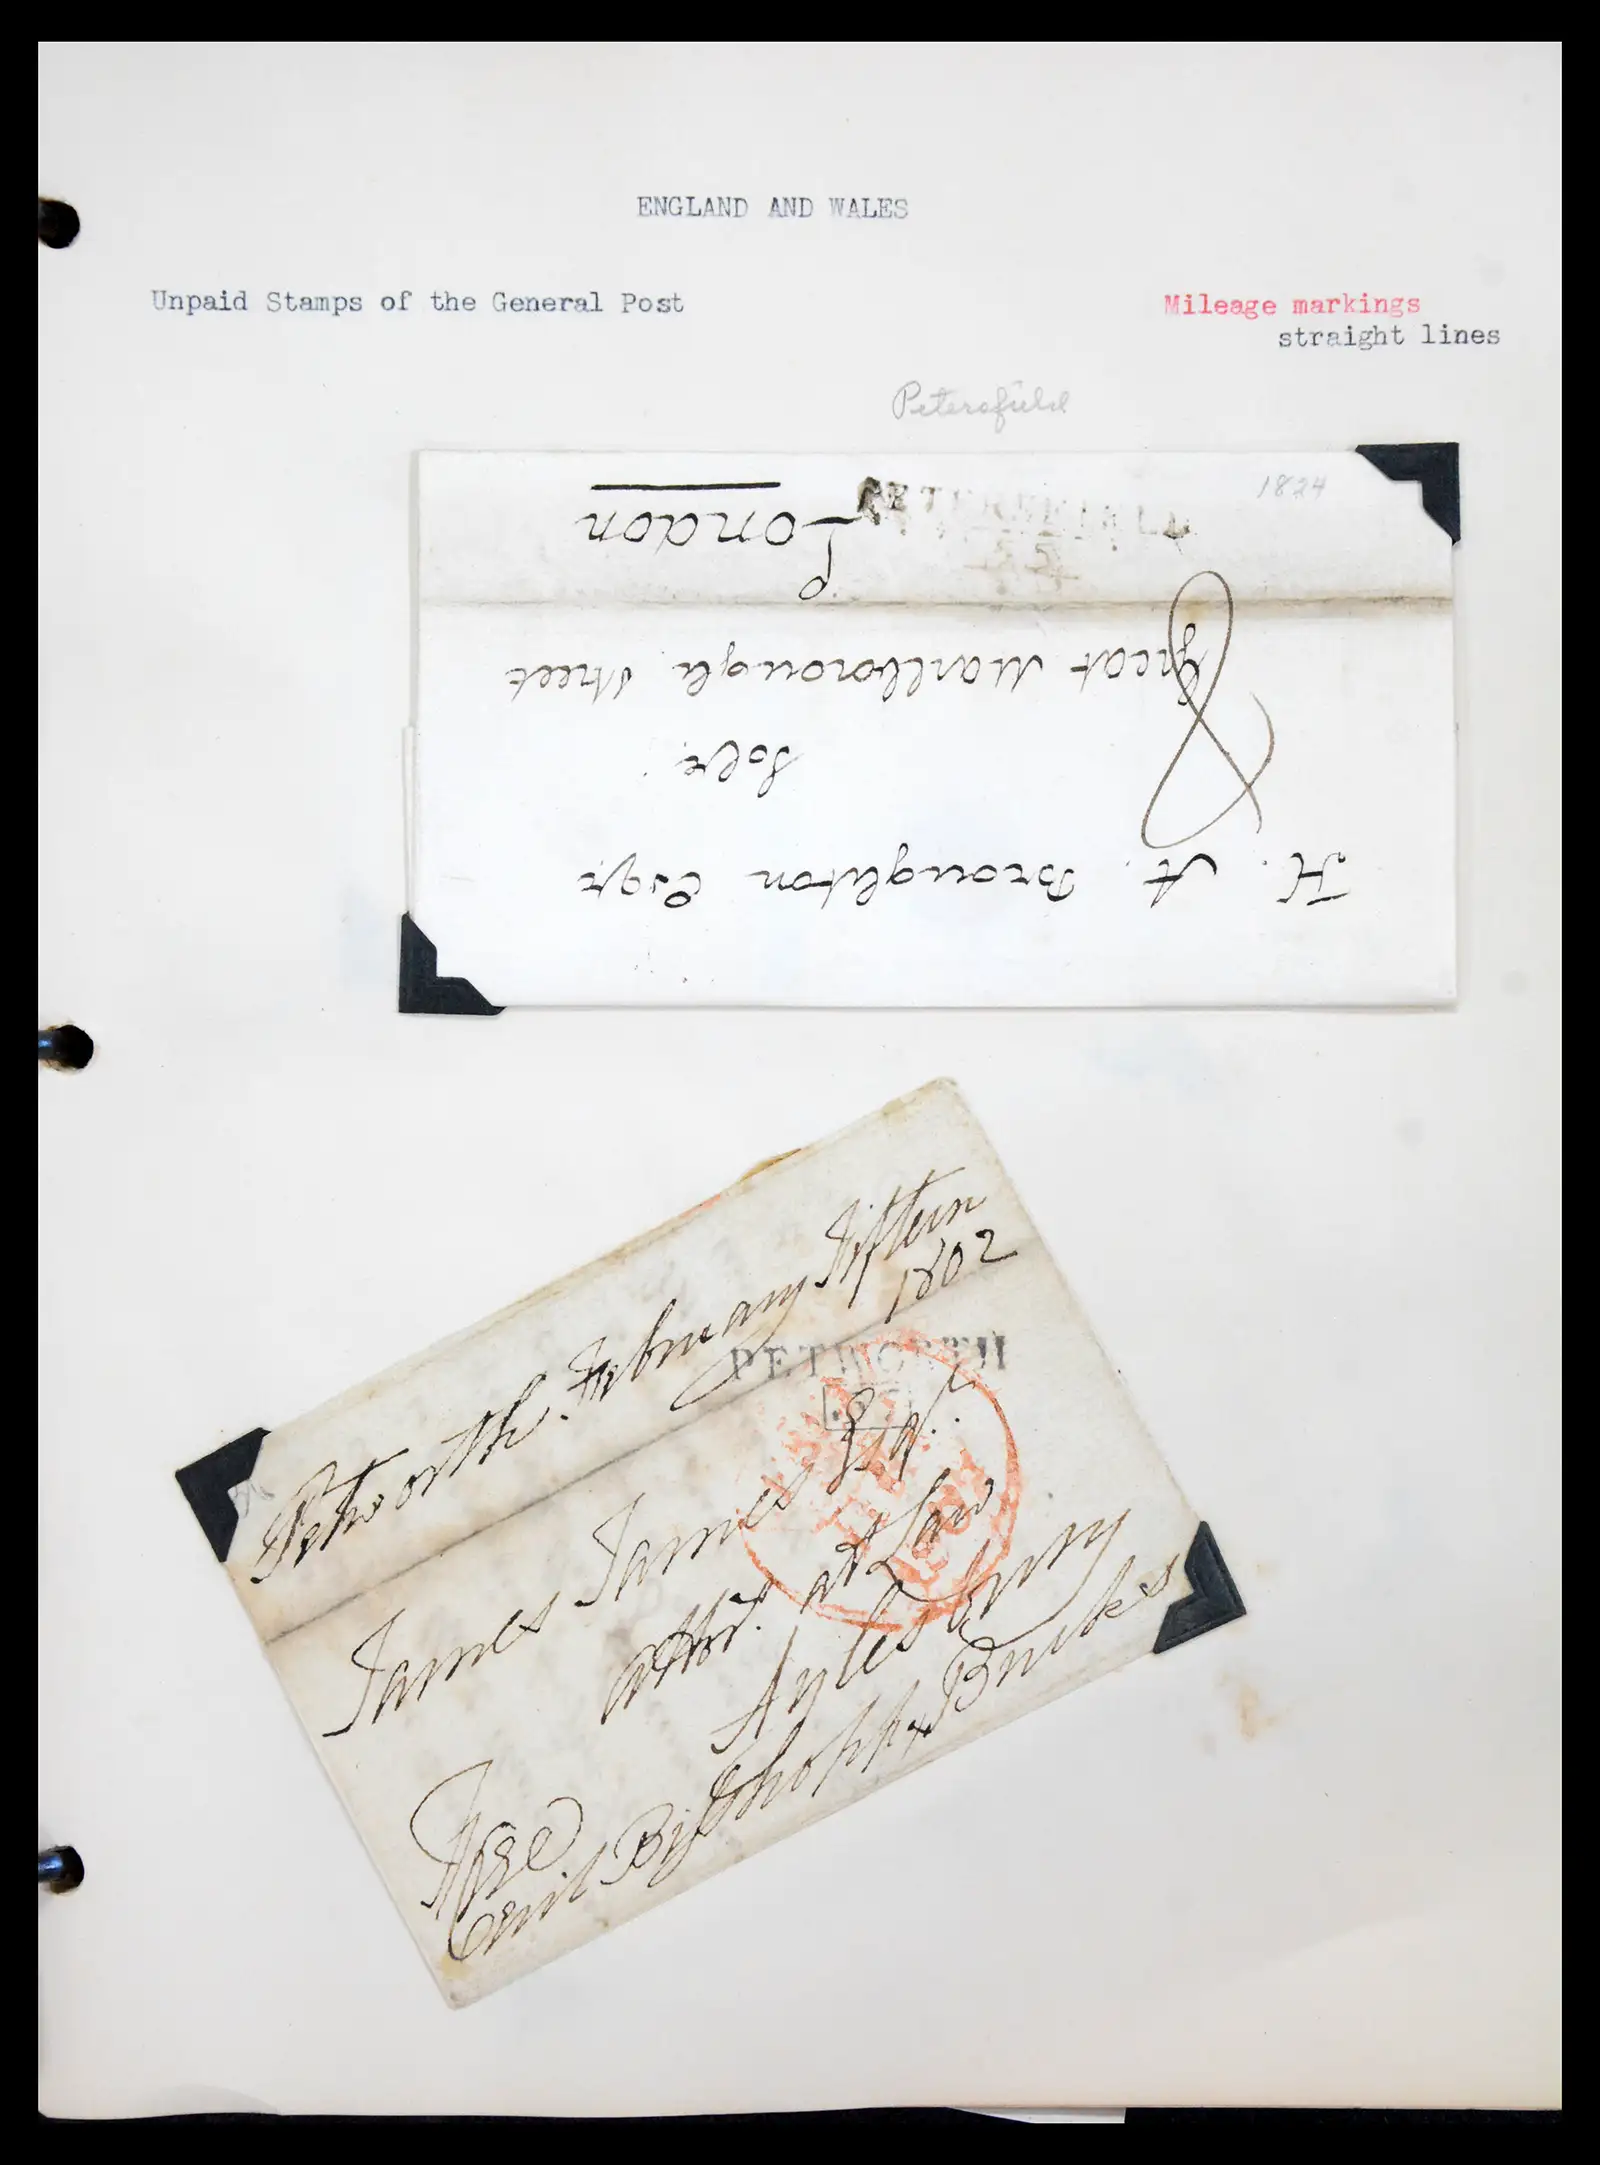 ENGLAND AND WALES
Unpaid Stamps of the General Post
Mileage markings
straight lines
Petersfield
1824
PETERSFIELD
H. A. Broughton Esqr
Solr.
Great Marlborough Street
London
8
Petworth February Fifteen
1802
PETWORTH
James James Esqr.
attor. at Law
Aylesbury
Bucks
Free
Cecil Bisshopp